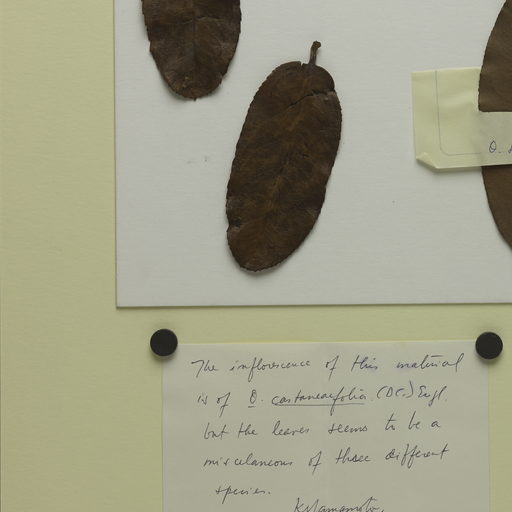 O.
The inflorescence of this material
is of O. castaneaefolia (DC.) Engl.
but the leaves seems to be a
miscelaneous of three different
species.
K. Yamamoto.